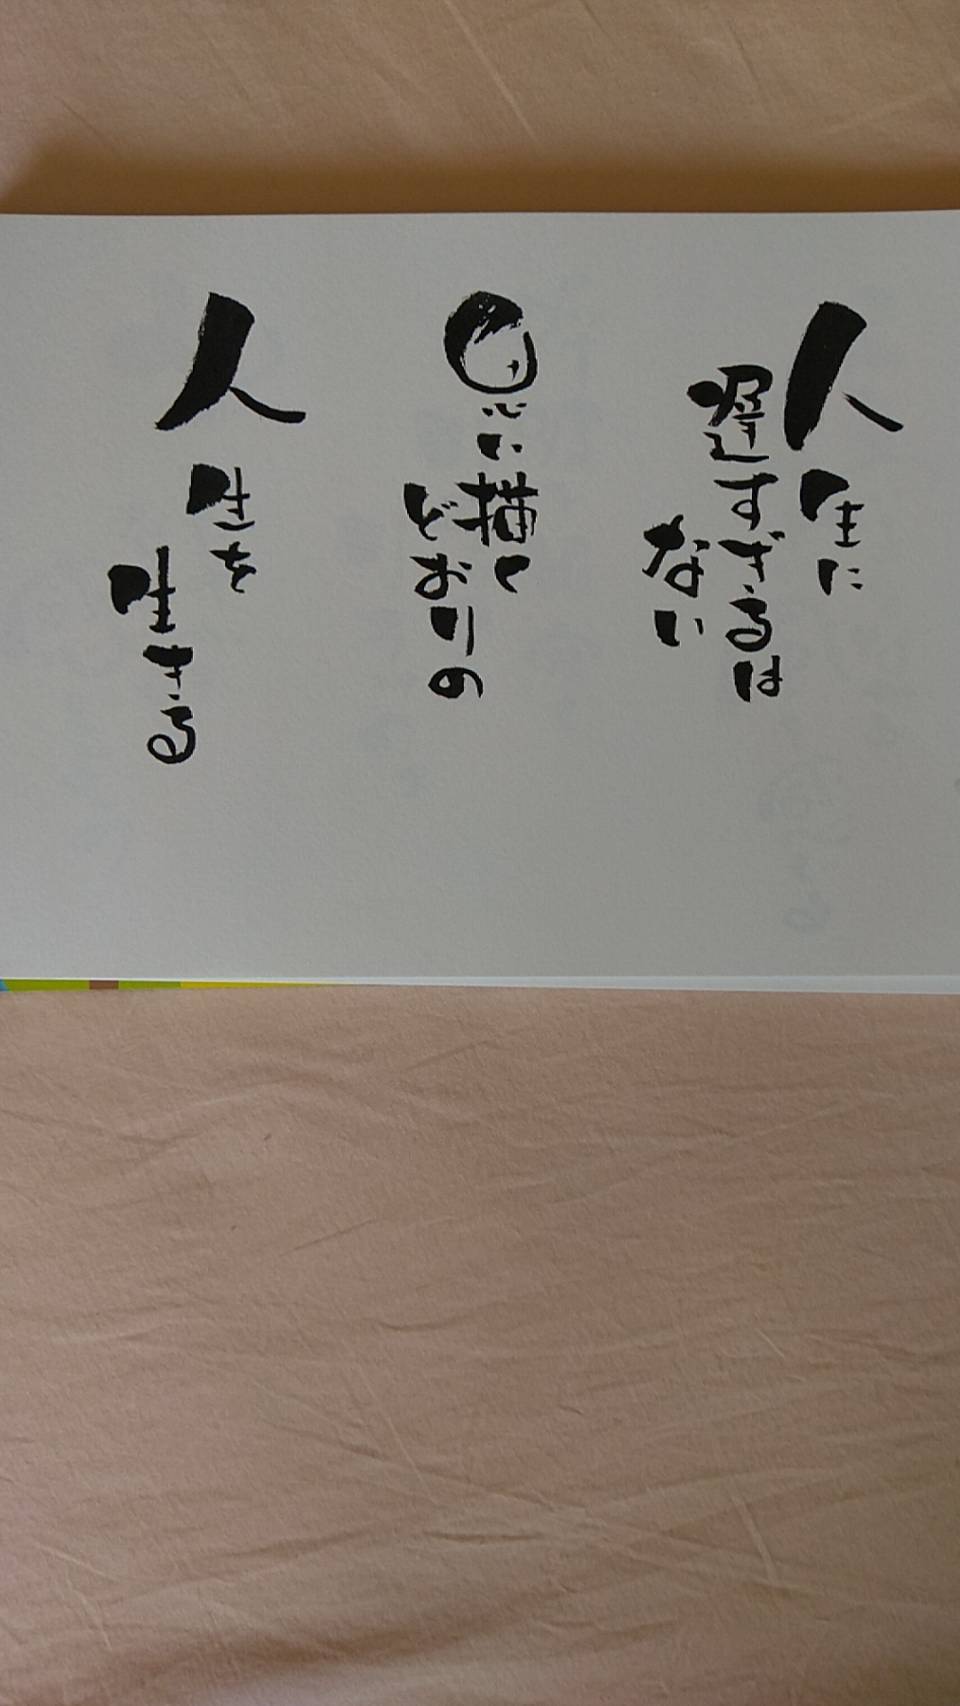 人生に
遅すぎるは
ない
思い描く
どおりの
人生を
生きる